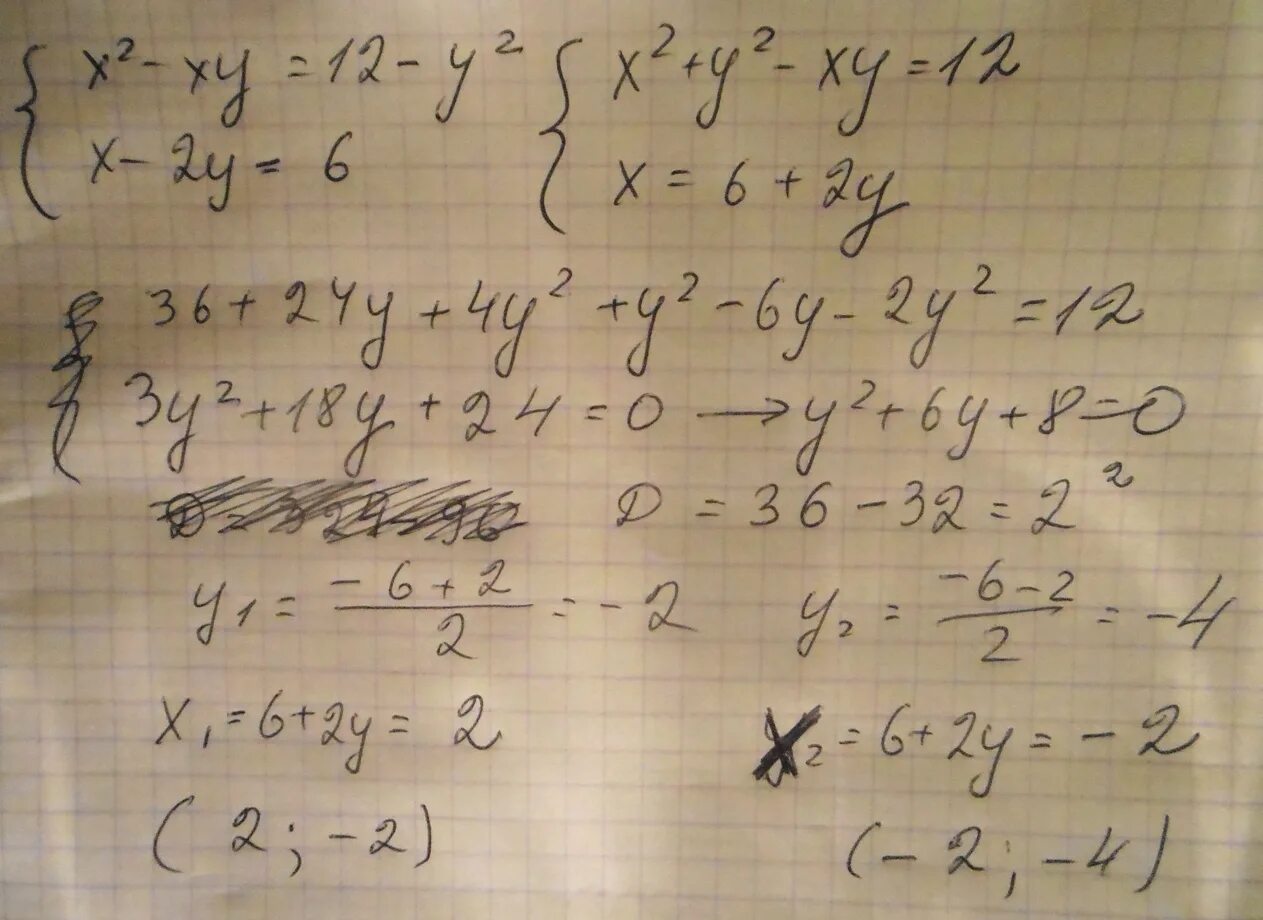 x² - xy = 12 - y²
x - 2y = 6
x² + y² - xy = 12
x = 6 + 2y
36 + 24y + 4y² + y² - 6y - 2y² = 12
3y² + 18y + 24 = 0 → y² + 6y + 8 = 0
D = 36 - 32 = 2²
y₁ = (-6 + 2)/2 = -2
y₂ = (-6 - 2)/2 = -4
x₁ = 6 + 2y = 2
x₂ = 6 + 2y = -2
(2; -2)
(-2; -4)